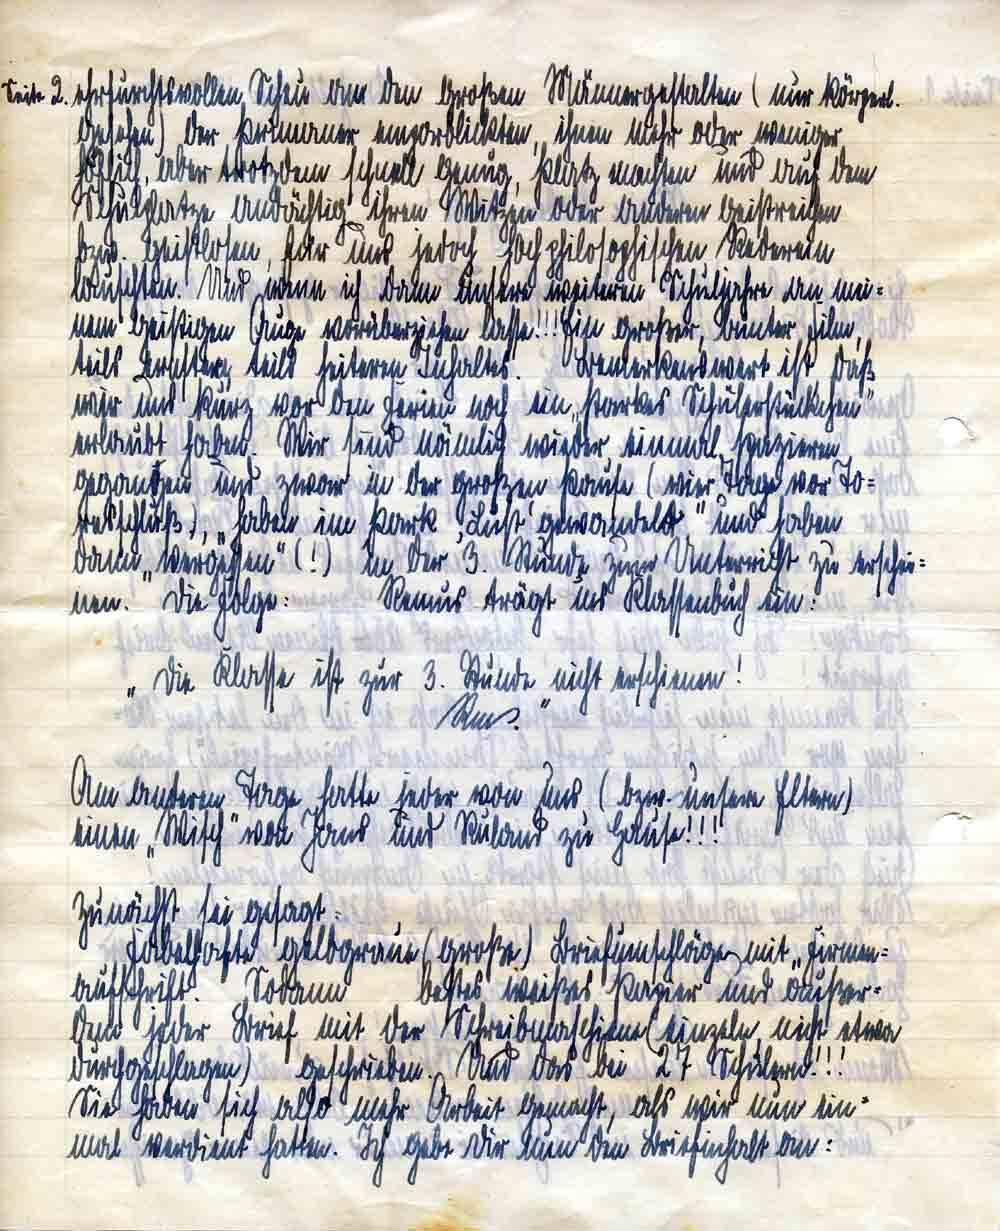 Seite 2. ehrfurchtsvollen Scheu an den großen Männergestalten (nur körperl.
gesehen) der Primaner emporblickten, ihnen mehr oder weniger
höflich, aber trotzdem schnell genug, Platz machten und auf dem
Schulplatze andächtig ihren Witzen oder anderen geistreichen
bzw. geistlosen, für uns jedoch hochphilosophischen Rederein
lauschten. Und wenn ich dann unsere weiteren Schuljahre an mei=
nem geistigen Auge vorüberziehen lasse!!! Ein großer, bunter Film,
teils ernsten, teils heiteren Inhaltes. Bemerkenswert ist, daß
wir uns kurz vor den Ferien noch ein „starkes Schülerstückchen"
erlaubt haben. Wir sind nämlich wieder einmal spazieren
gegangen und zwar in der großen Pause (vier Tage vor To=
resschluß), „haben im Park ‚Lust' gewandelt" und haben
dann „vergessen" (!) in der 3. Stunde zum Unterricht zu erschei=
nen. Die Folge: Remus trägt ins Klassenbuch ein:
„Die Klasse ist zur 3. Stunde nicht erschienen!
Rms."
Am anderen Tage hatte jeder von uns (bzw. unsere Eltern)
einen „Wisch" von Jans und Ruland zu Hause!!!
Zunächst sei gesagt:
Fabelhafte gelbgraue (große) Briefumschläge mit „Firmen=
aufschrift. Sodann bestes weißes Papier und außer=
dem jeder Brief mit der Schreibmaschiene (einzeln, nicht etwa
durchgeschlagen) geschrieben. Und das bei 27 Schülern!!!
Sie haben sich also mehr Arbeit gemacht, als wir nun ein=
mal verdient hatten. Ich gebe Dir nun den Briefinhalt an: